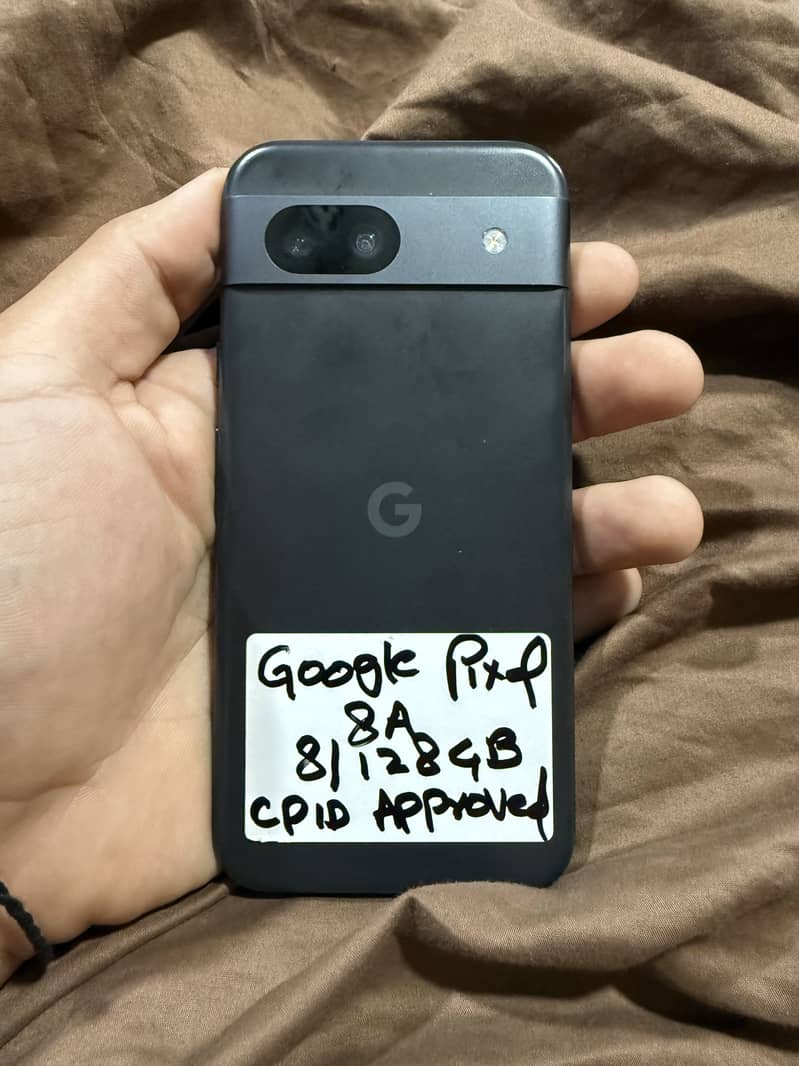 G
Google Pixel
8A
8/128GB
CPID Approved